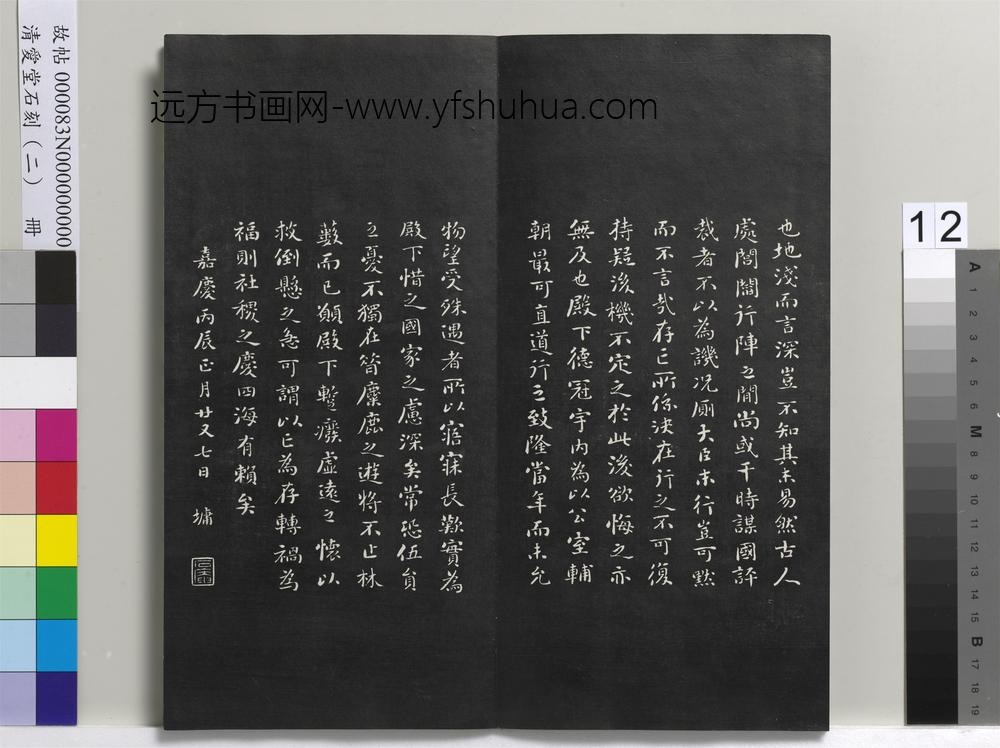 也地淺而言深豈不知其未易然古人
處閭閻行陣之間尚或干時謀國評
裁者不以為譏况廁大臣末行豈可默
而不言哉存亡所係決在行之不可復
持疑後機不定之於此後欲悔之亦
無及也殿下德冠宇內為以公室輔
朝最可直道行之致隆當年而未允
物望受殊遇者所以寤寐長歎實為
殿下惜之國家之慮深矣常恐伍員
之憂不獨在昔麋鹿之遊將不止林
藪而已願殿下暫廢虛遠之懷以
救倒懸之急可謂以亡為存轉禍為
福則社稷之慶四海有賴矣
嘉慶丙辰正月廿又七日 墉
远方书画网-www.yfshuhua.com
故帖 000083N000000000
清愛堂石刻(二) 冊
12
A 1 2 3 4 5 6 M 8 9 10 11 12 13 14 15 B 17 18 19